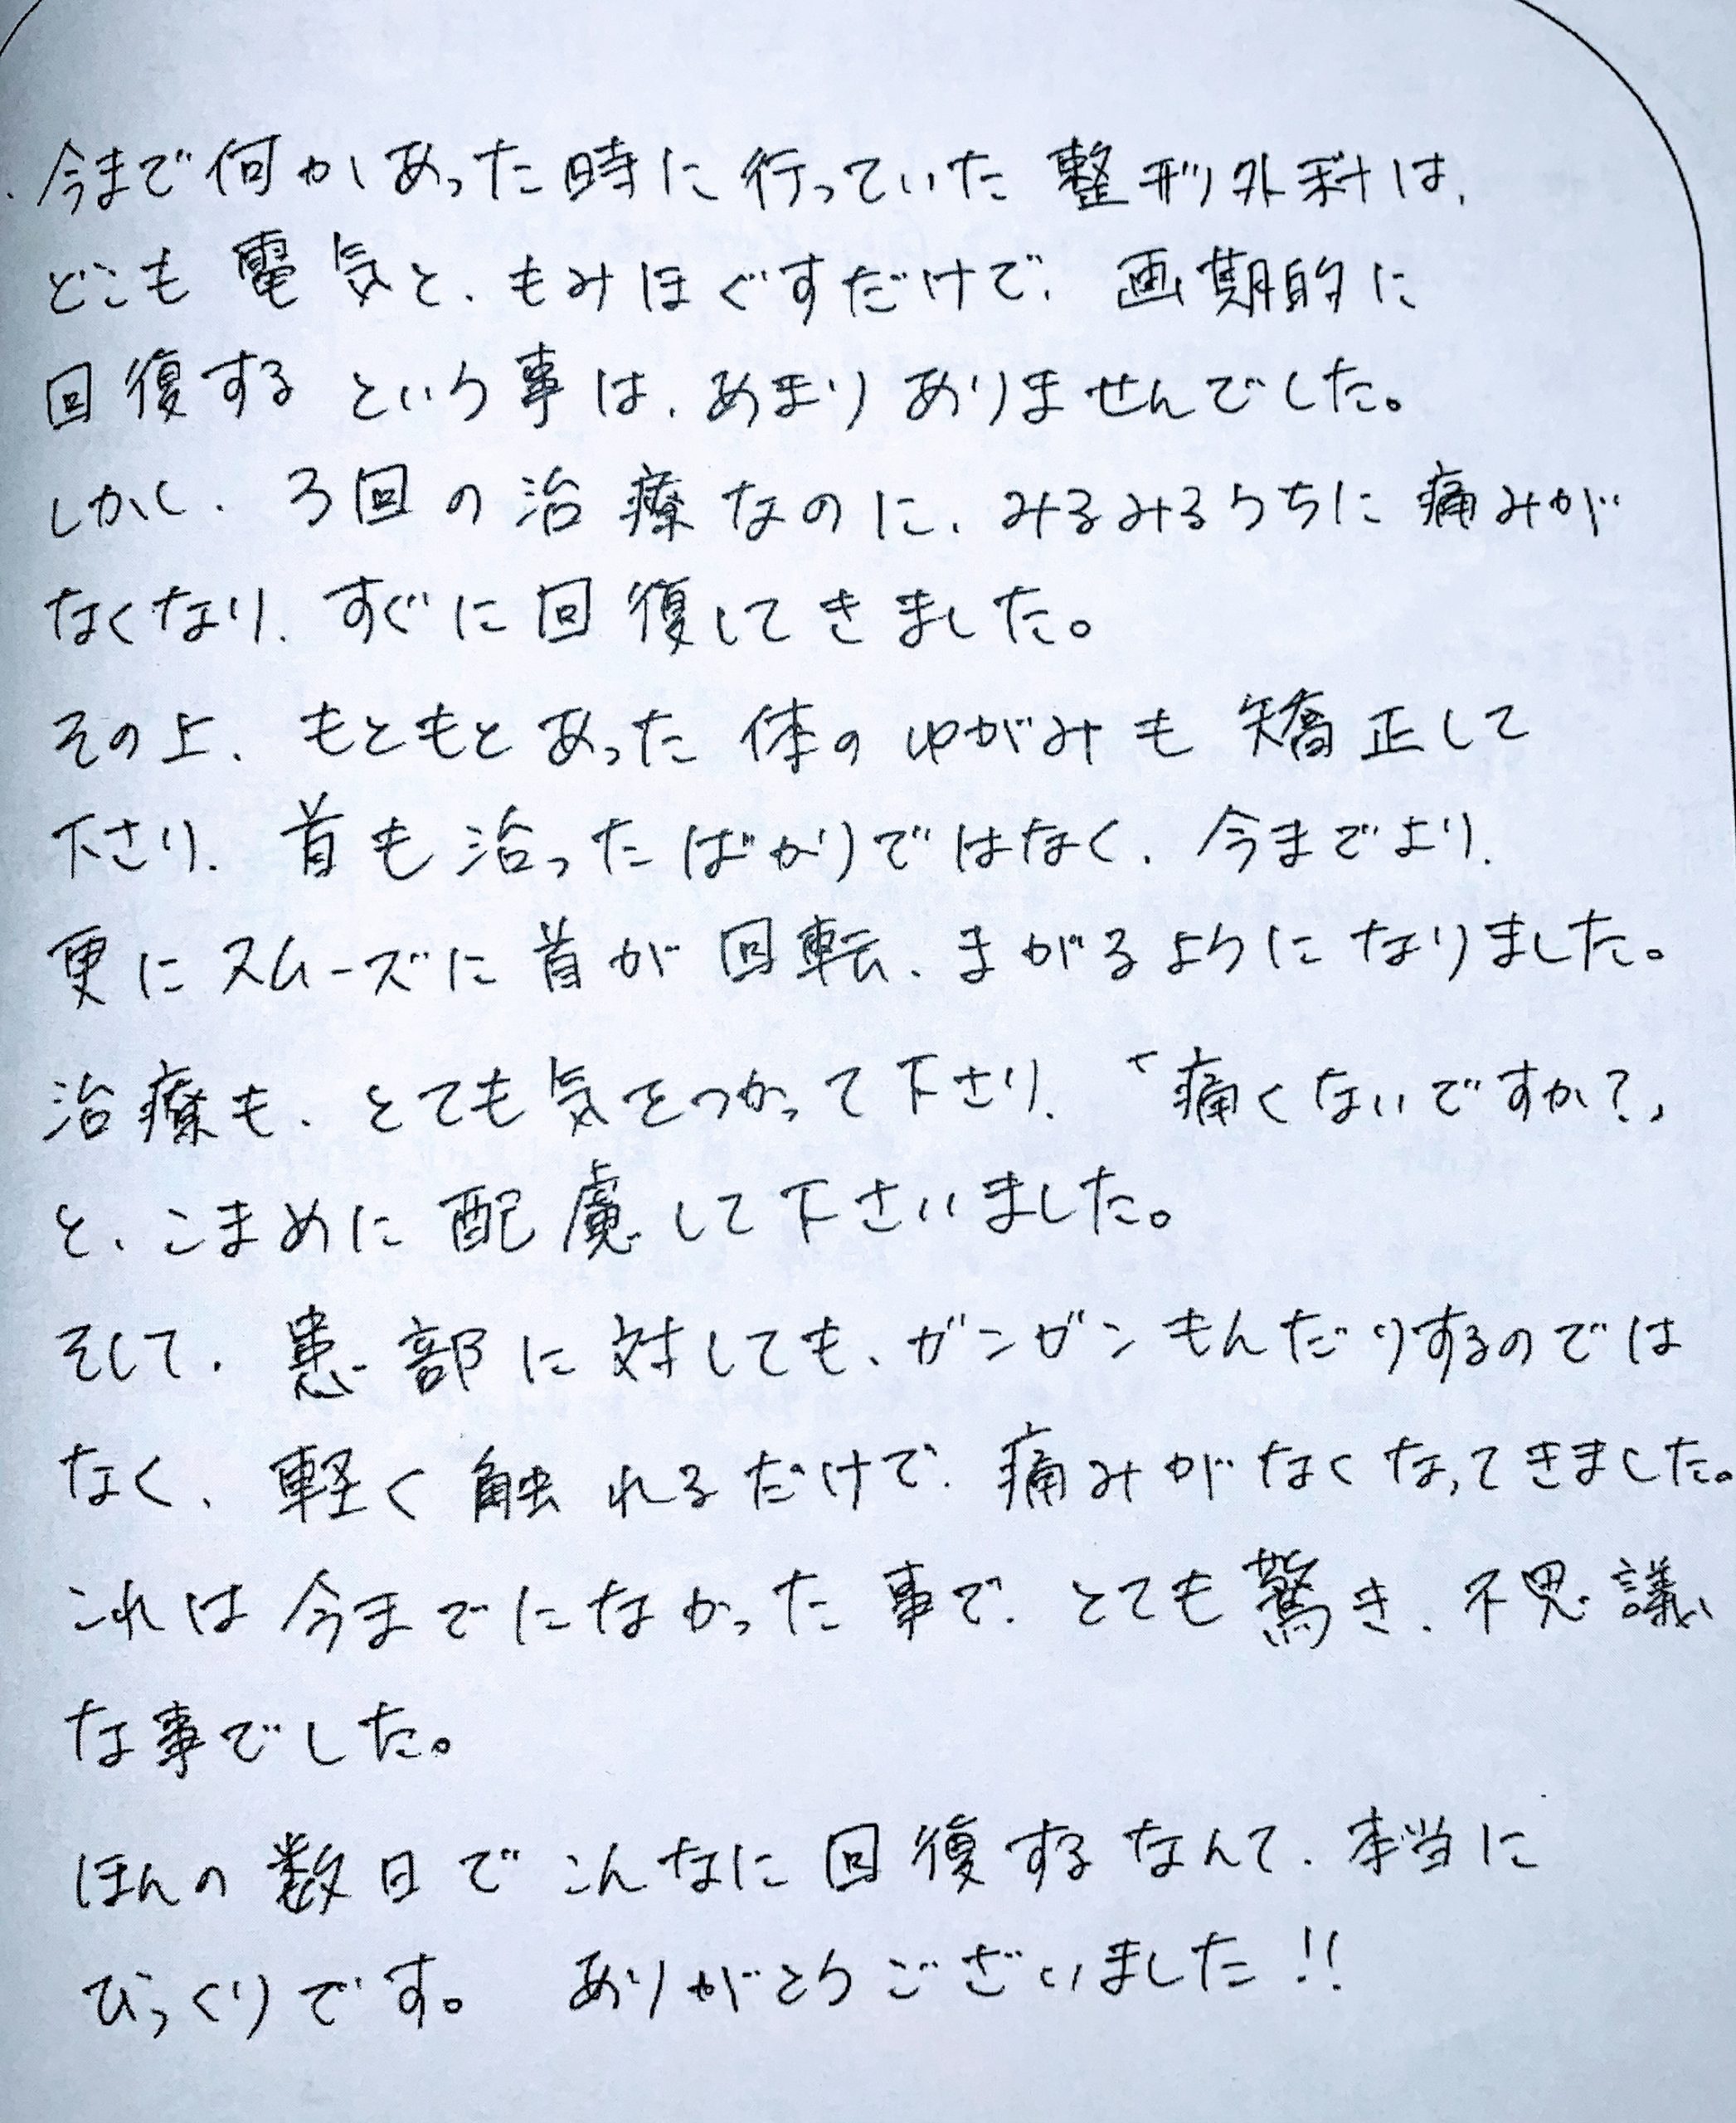 今まで何かあった時に行っていた整形外科は、
どこも電気と、もみほぐすだけで、画期的に
回復するという事は、あまりありませんでした。
しかし、3回の治療なのに、みるみるうちに痛みが
なくなり、すぐに回復してきました。
その上、もともとあった体のゆがみも矯正して
下さり、首も治ったばかりではなく、今までより、
更にスムーズに首が回転、まがるようになりました。
治療も、とても気をつかって下さり、「痛くないですか?」
と、こまめに配慮して下さいました。
そして、患部に対しても、ガンガンもんだりするのでは
なく、軽く触れるだけで、痛みがなくなってきました。
これは今までになかった事で、とても驚き、不思議
な事でした。
ほんの数日でこんなに回復するなんて、本当に
びっくりです。 ありがとうございました!!